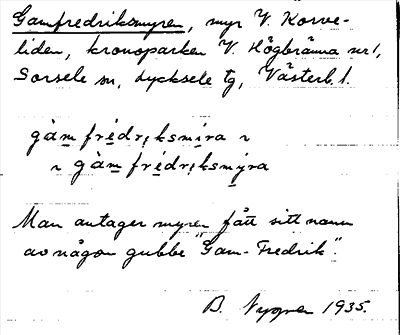 Gamfredriksmyren, myr V. Korve-
liden, kronoparken V. Högbränna nr 1,
Sorsele sn, Lycksele tg, Västerb. l.
gàm frédriksmira ~
~ gàm frédriksmýra
Man antager myren fått sitt namn
av någon gubbe "Gam-Fredrik".
B. Nygren 1935.